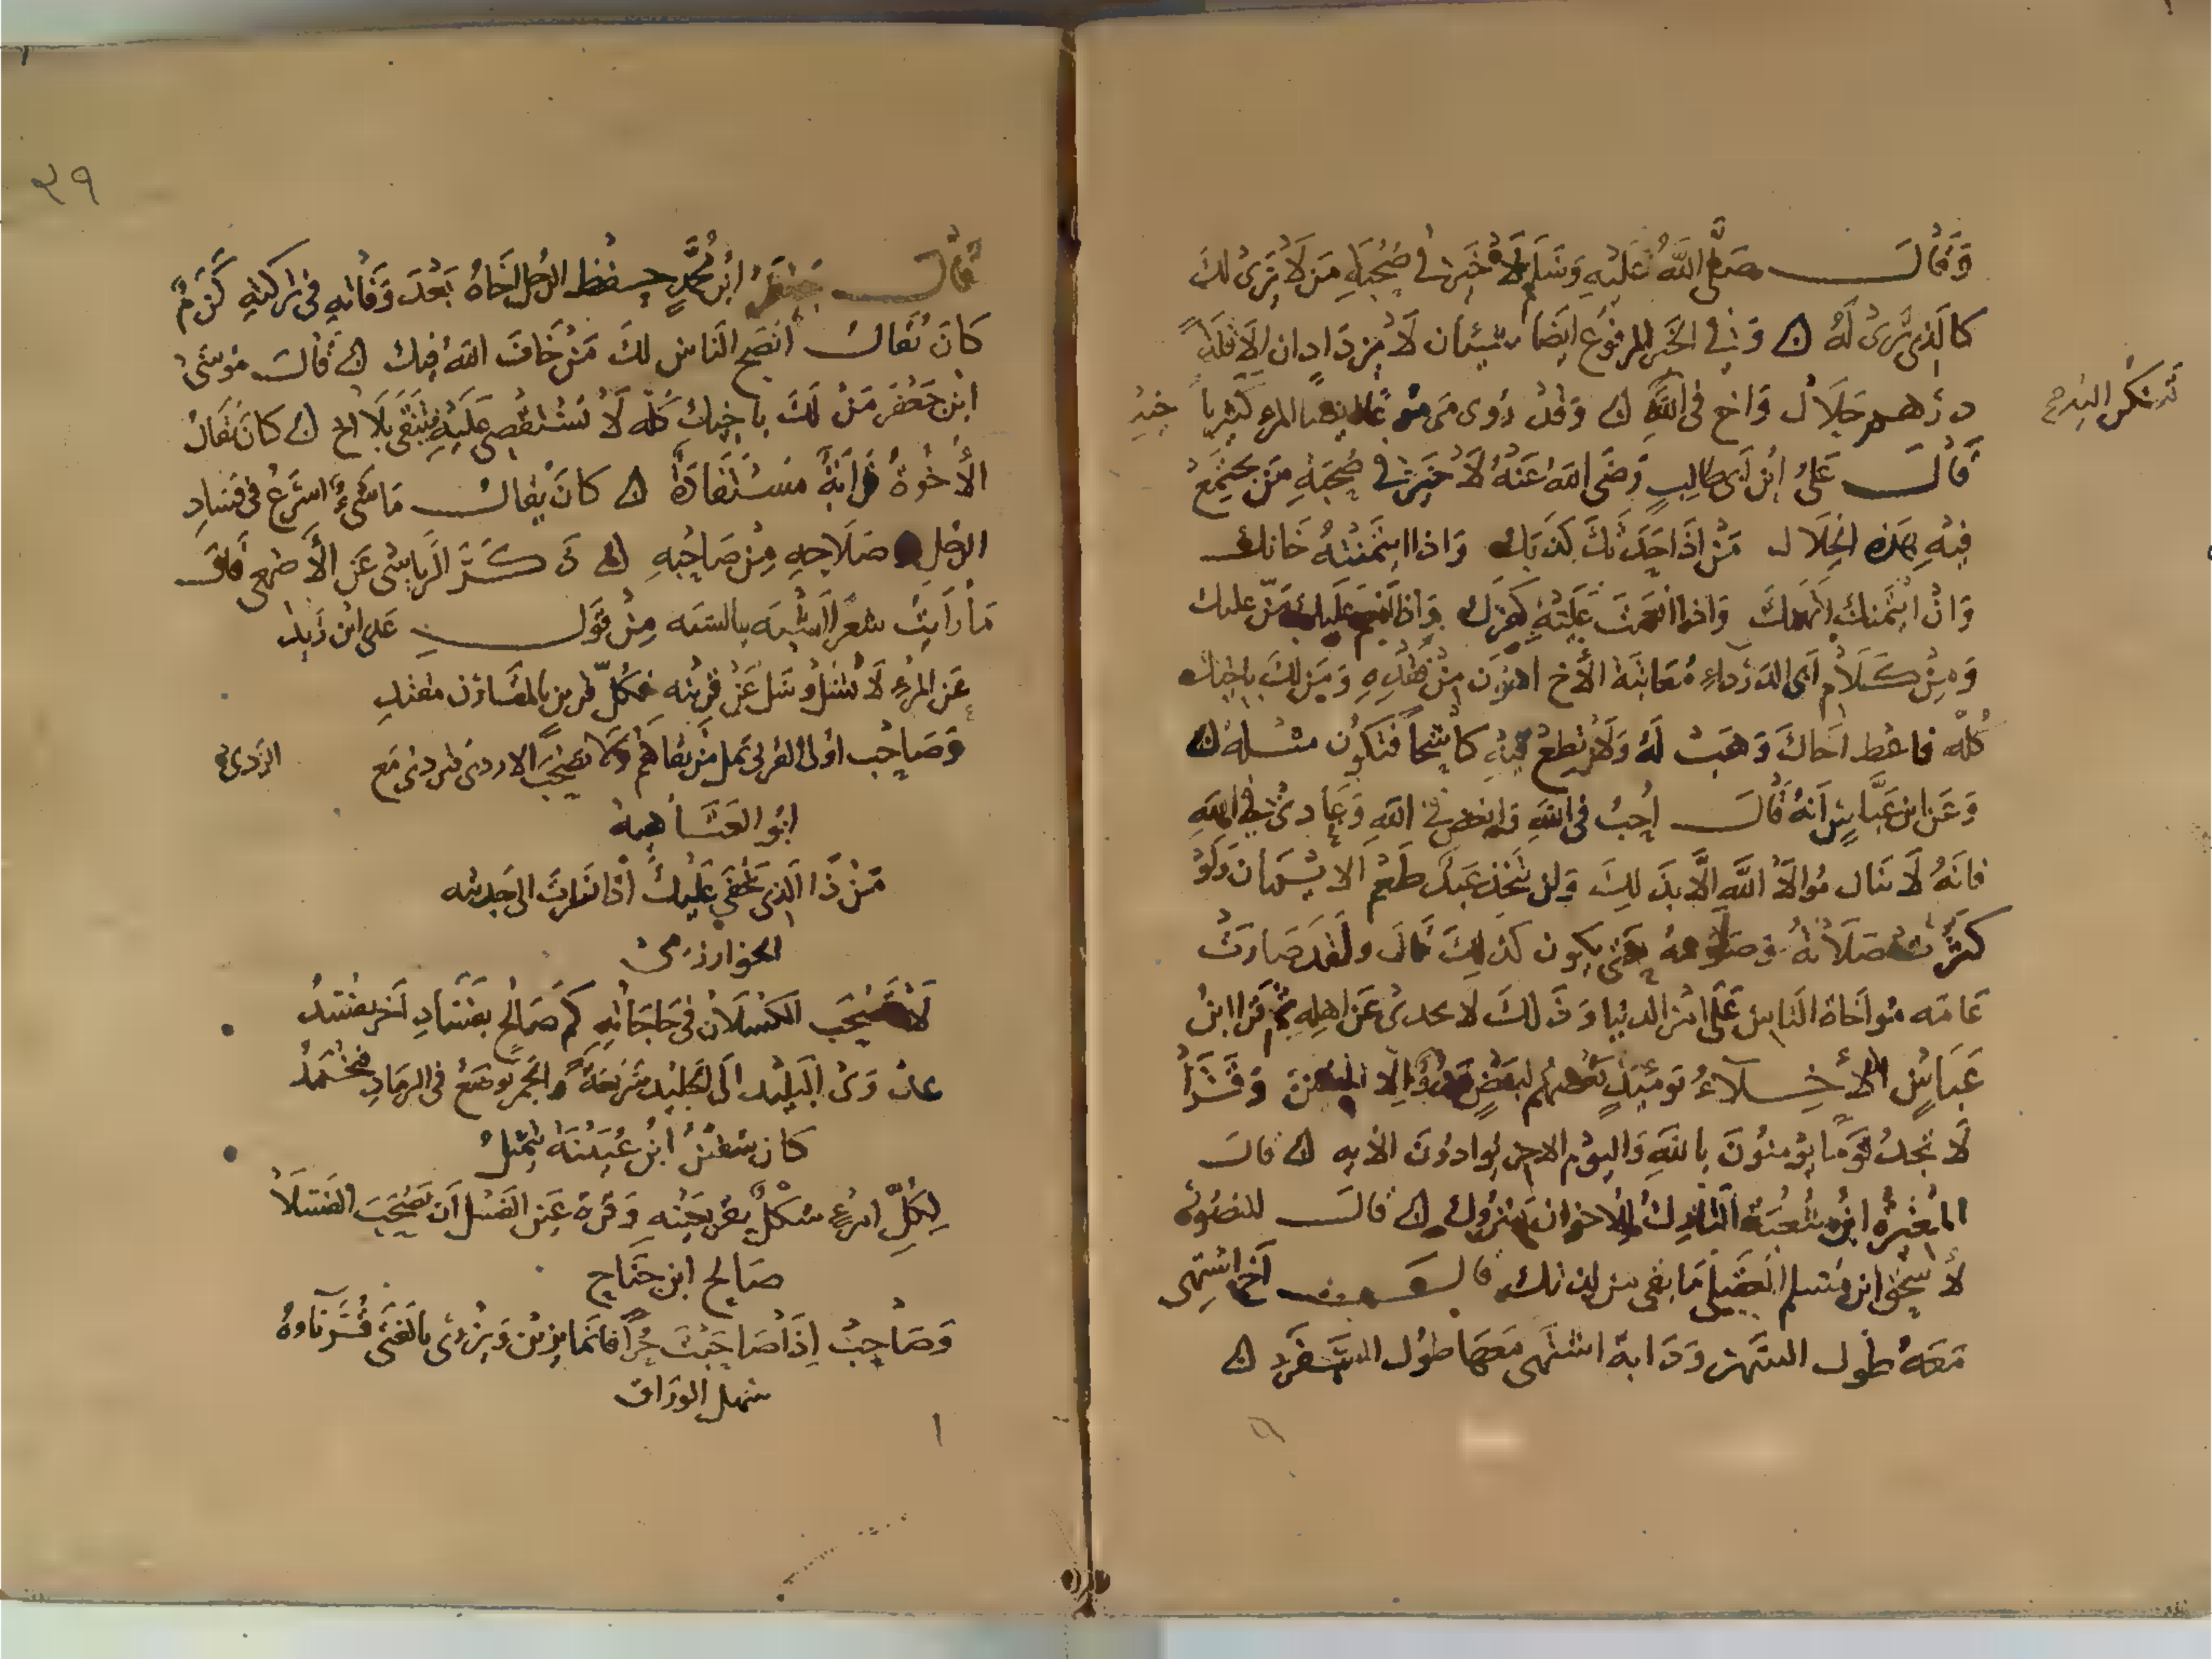 وَقَالَ صَلَّى اللَّهُ عَلَيْهِ وَسَلَّم لَا خَيْرَ في صُحْبَةِ مَن لَا يَرَىٰ لَكَ
كالَّذِي تَرَىٰ لَهُ ۞ وَفي الخَبَر المرفوع ايضا شيئان لَا يزدادان الا قلة
درهم حَلَال وَاخ فى اللَّهِ ۞ وَقَدْ رَوى
خير
تذكر البدرى
قَالَ عَلىُّ ابْن أبى طالِبٍ رَضى اللهُ عَنْهُ لَا خَيْرَ في صُحْبَةِ مَن يَجْتَمِعُ
فِيْهِ هَذه الخِلَال مَنْ اذَا حَدَّثَكَ كَذَبَكَ وَاذا ائتَمَنْتَهُ خَانك
وَانْ ائتمنك اتهمكَ وَاذا انعمت عَلَيْهِ كفرك وَاذا انعَمَ عَلَيك مَنّ عليك
وَمِنْ كَلَام أبى الدَرْدَاءِ مُعَاتَبَة الأَخ اهون مِنْ فَقْدِهِ وَمَن لَكَ باخيك
كُلّه فاعط اخَاكَ وَهَبْ لَهُ وَلَا تطعْ فِيْهِ كاشِحاً فَتَكُون مثله ۞
وَعَن ابن عَبَّاسٍ أنَهُ قَالَ أحِبْ فى اللهِ وَابغض فى اللهِ وَعَادِىْ فى اللهِ
فانَهُ لَا تنال مُوالاة اللهِ إلَّا بذلِكَ وَلن يَجْد عَبد طَعْم الايْمَان وَلَوْ
كثرَتْ صَلَاتهُ وَصَومه حَتى يكون كذلِكَ قالَ ولقَد صَارَتْ
عَامّه مُواخاة الناسِ عَلَى امْر الدنْيا وَذَلكَ لا يجدىْ عَن اهلِهِ ثُمَّ قَرَا ابنُ
عَبَاسٍ الأَخِلَّآءُ يَومَئذٍ بَعْضُهُم لبَعْضٍ عَدُوٌّ الّا المتقين وَقَرَأ
لَا تجدُ قَوماً يؤمنُونَ باللهِ وَاليوم الاخر يُوادوْنَ الآيه ۞ قالَ
المُغيرة ابْن شُعْبَة التارِكُ للاخوان مَتروك ۞ قالَ للمنصُور
لأسحٰق ابن مُسلم العقيلى مَا بقى من لذاتك قال أخ اشتهى
مَعَهُ طُول السَّهر وَدَابة اشتهى مَعَهَا طول السَّفَر ۞
٣٩
قَالَ جَعْفَر ابْن مُحَمَّدٍ حفظ الرجل اخَاهُ بَعْدَ وَفَاتِهِ فى تركتهِ كَرَمٌ
كَانَ يُقالُ انصَح الناس لَكَ مَنْ خَافَ اللهَ فيك ۞ قَالَ مُوسَىٰ
ابْن جَعْفر مَنْ لَكَ باخيك كُلّه لَا تَسْتقْصِى عَلَيْهِ فتبْقى بَلا اخ ۞ كانَ يُقَالُ
الأُخُوةُ قَرَابَةٌ مُسْتَفَادَةٌ ۞ كانَ يقالُ مَا شىْءٌ اسرَعُ فى فسَادِ
الرجُلِ وصَلَاحِهِ مِنْ صَاحِبهِ ۞ ذَكَرَ الرياشى عَن الأَصْمَعى قال
مَا رَأيتُ شعراً اشْبَه بالسنه مِنْ قَول عَدى ابْن زَيد
عَن المرْءِ لَا تَسْئل وسَل عَنْ قرينه فكُلّ قرين بالمقارَن مقتدِ
وَصَاحِب اولى القربى وَلَا تصْحَب الاردى فتردى مَع
الرّدى
ابُو العَتَاهيةِ
مَنْ ذَا الَّذى يخفى عَلَيكَ اذا نظرْتَ الى خدينه
الخوارزمى
لَا تَصْحَب الكَسْلَان فى حَاجَاتِهِ كَم صَالِحٍ بفسَادِ آخر يفسُدُ
عدْوَى البَلِيْد الَى الجَلِيد سَريعَةٌ وَالجَمر يوضَعُ فى الرمَادِ فيخْمَدُ
كان سفين ابْن عُيَيْنَة يتمثلُ
لِكُلّ امرءٍ شكْلٌ يقر بعَيْنِهِ وَقُرة عَين الفسْل أن يَصْحَبَ الفَسْلَا
صَالِح ابن جَنَاحٍ
وَصَاحِبْ إِذَا صَاحَبْتَ حُرّاً فانمَا يزين وَيزْرى بالفتَى قُرَنَاوهُ
سهل الوراق